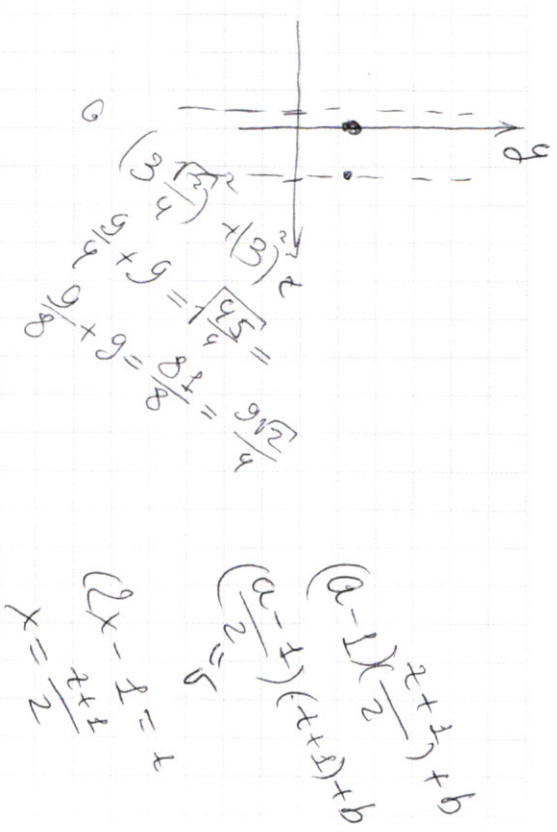 y
t
6
(3√2/4)² + (3)²
9/4 + 9 = √45/4 =
9/8 + 9 = 81/8 = 9√2/4
(a-1)(t+1/2)+b
(a-1/2)(t+1)+b
(2x-1=t
x = t+1/2